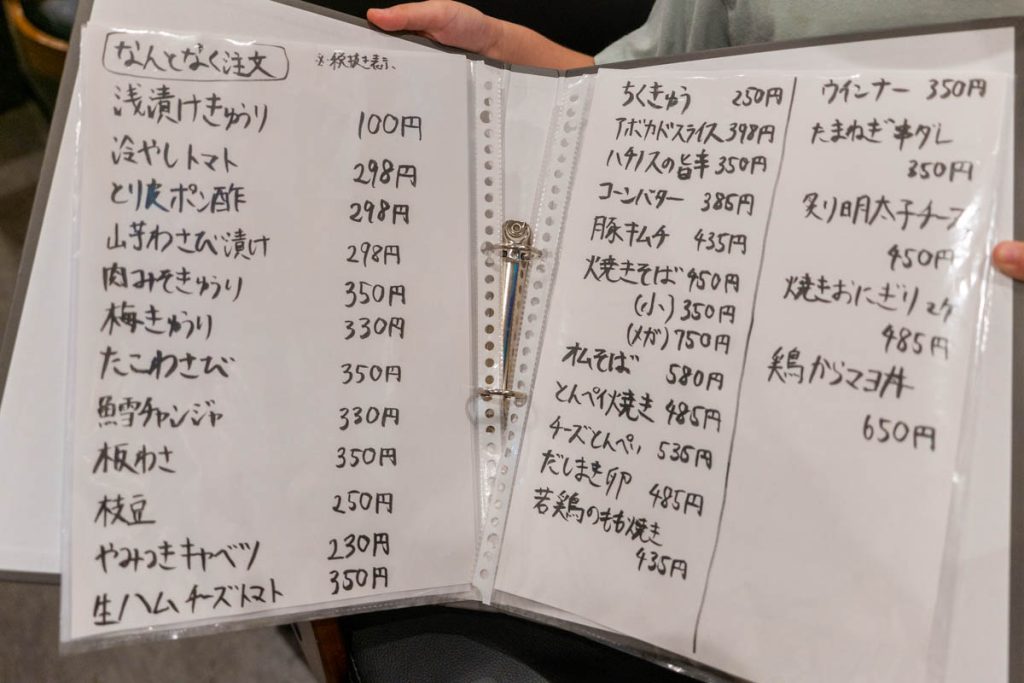 なんとなく注文
※税抜き表示、
浅漬けきゅうり 100円
冷やしトマト 298円
とり皮ポン酢 298円
山芋わさび漬け 298円
肉みそきゅうり 350円
梅きゅうり 330円
たこわさび 350円
鱈チャンジャ 330円
板わさ 350円
枝豆 250円
やみつきキャベツ 230円
生ハムチーズトマト 350円
ちくきゅう 250円
アボカドスライス 398円
ハチノスの旨辛 350円
コーンバター 385円
豚キムチ 435円
焼きそば 450円
(小) 350円
(メガ) 750円
オムそば 580円
とんペイ焼き 485円
チーズとんぺい 535円
だしまき卵 485円
若鶏のもも焼き
435円
ウインナー 350円
たまねぎ串ダレ
350円
炙り明太子チーズ
450円
焼きおにぎり2ケ
485円
鶏からマヨ丼
650円